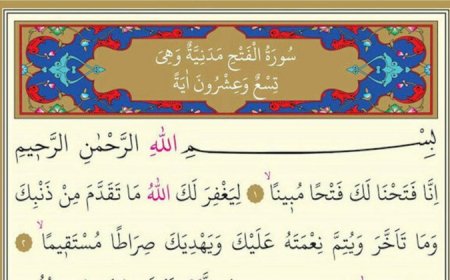 سُورَةُ الْفَتْحِ مَدَنِيَّةٌ وَهِىَ
تِسْعٌ وَعِشْرُونَ اٰيَةً
بِسْمِ اللّٰهِ الرَّحْمٰنِ الرَّحٖيمِ
اِنَّا فَتَحْنَا لَكَ فَتْحًا مُبٖينًاۙ ﴿١﴾ لِيَغْفِرَ لَكَ اللّٰهُ مَا تَقَدَّمَ مِنْ ذَنْبِكَ
وَمَا تَاَخَّرَ وَيُتِمَّ نِعْمَتَهُ عَلَيْكَ وَيَهْدِيَكَ صِرَاطًا مُسْتَقٖيمًاۙ ﴿٢﴾